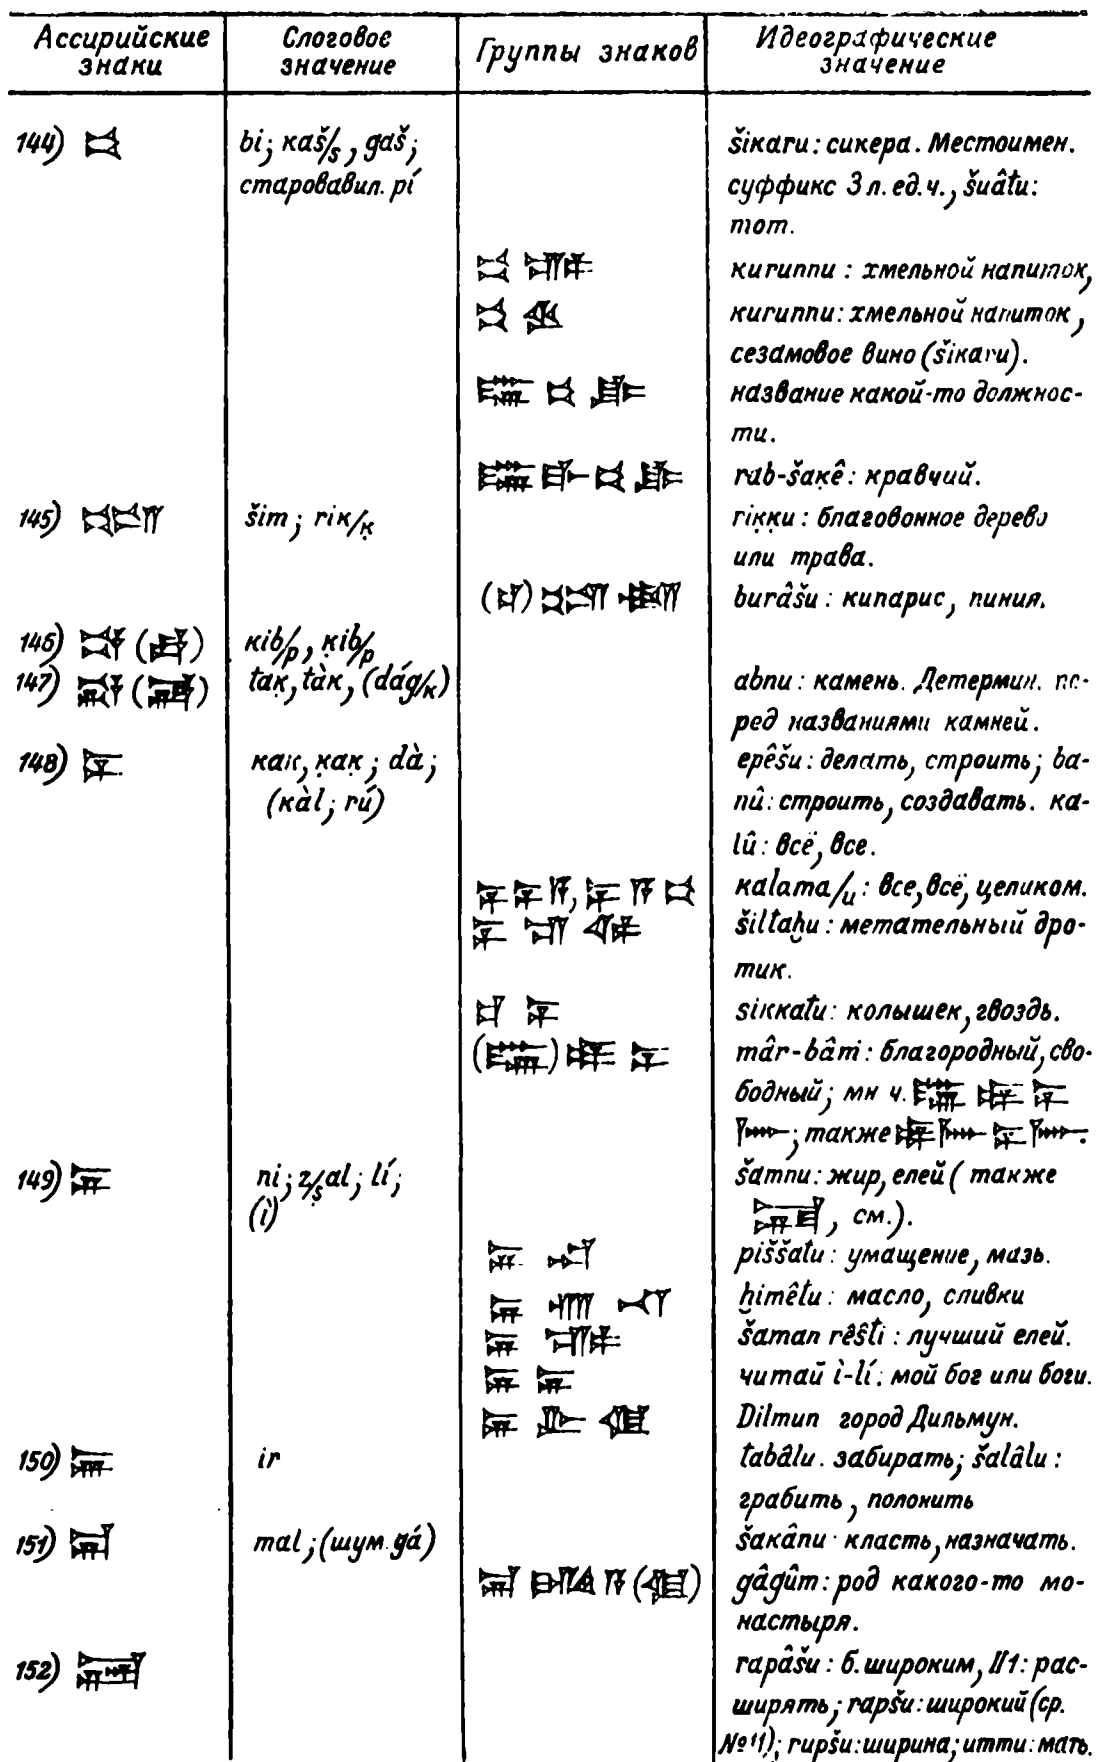 Ассирийские знаки
Слоговое значение
Группы знаков
Идеографические значение
144) 𒁉 bi; kaš/s, gaš; šikaru: сикера. Местоимен.
старовавил. pí суффикс 3 л. ед. ч., šuâtu:
тот.
kurunnu: хмельной напиток,
kurunnu: хмельной напиток,
сезамовое вино (šikaru).
название какой-то должнос-
ти.
rab-šaḳê: кравчий.
145) šim; rik/ḳ riḳḳu: благовонное дерево
или трава.
burâšu: кипарис, пиния.
146) kib/p, ḳib/p
147) taḳ, tàk, (dág/k) abnu: камень. Детермин. пе-
ред названиями камней.
148) 𒆕 kak, ḳaḳ; dà; epêšu: делать, строить; ba-
(kàl; rú) nû: строить, создавать. ka-
lû: всё, все.
kalama/u: все, всё, целиком.
šiltaḫu: метательный дро-
тик.
sikkatu: колышек, гвоздь.
mâr-bâni: благородный, сво-
бодный; мн ч.
; также
149) 𒉌 ni; z/ṣal; lí; šamnu: жир, елей (также
(ì) , см.).
piššatu: умащение, мазь.
ḫimêtu: масло, сливки
šaman rêšti: лучший елей.
читай ì-lí: мой бог или боги.
Dilmun город Дильмун.
150) 𒅕 ir tabâlu. забирать; šalâlu:
грабить, полонить
151) 𒂷 mal; (шум. gá) šakânu класть, назначать.
gâgûm: род какого-то мо-
настыря.
152) rapâšu: б. широким, II1: рас-
ширять; rapšu: широкий (ср.
№11); rupšu: ширина; ummu: мать.